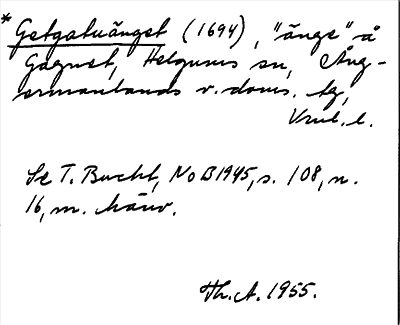 * Getgatuänget (1694), "änge" å
Gagnet, Helgums sn, Ång-
ermanlands v. doms. tg,
Vnl. l.
Se T. Bucht, NoB 1945, s. 108, n.
16, m. hänv.
Th. A. 1955.